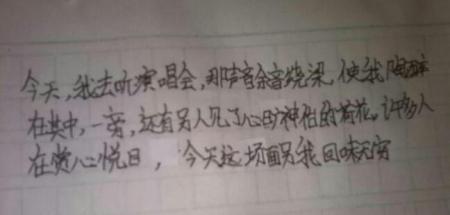 今天,我去听演唱会,那声音余音绕梁,使我陶醉
在其中,一旁,还有另人见了心旷神怡的荷花。许多人
在赏心悦目,今天这场面另我回味无穷